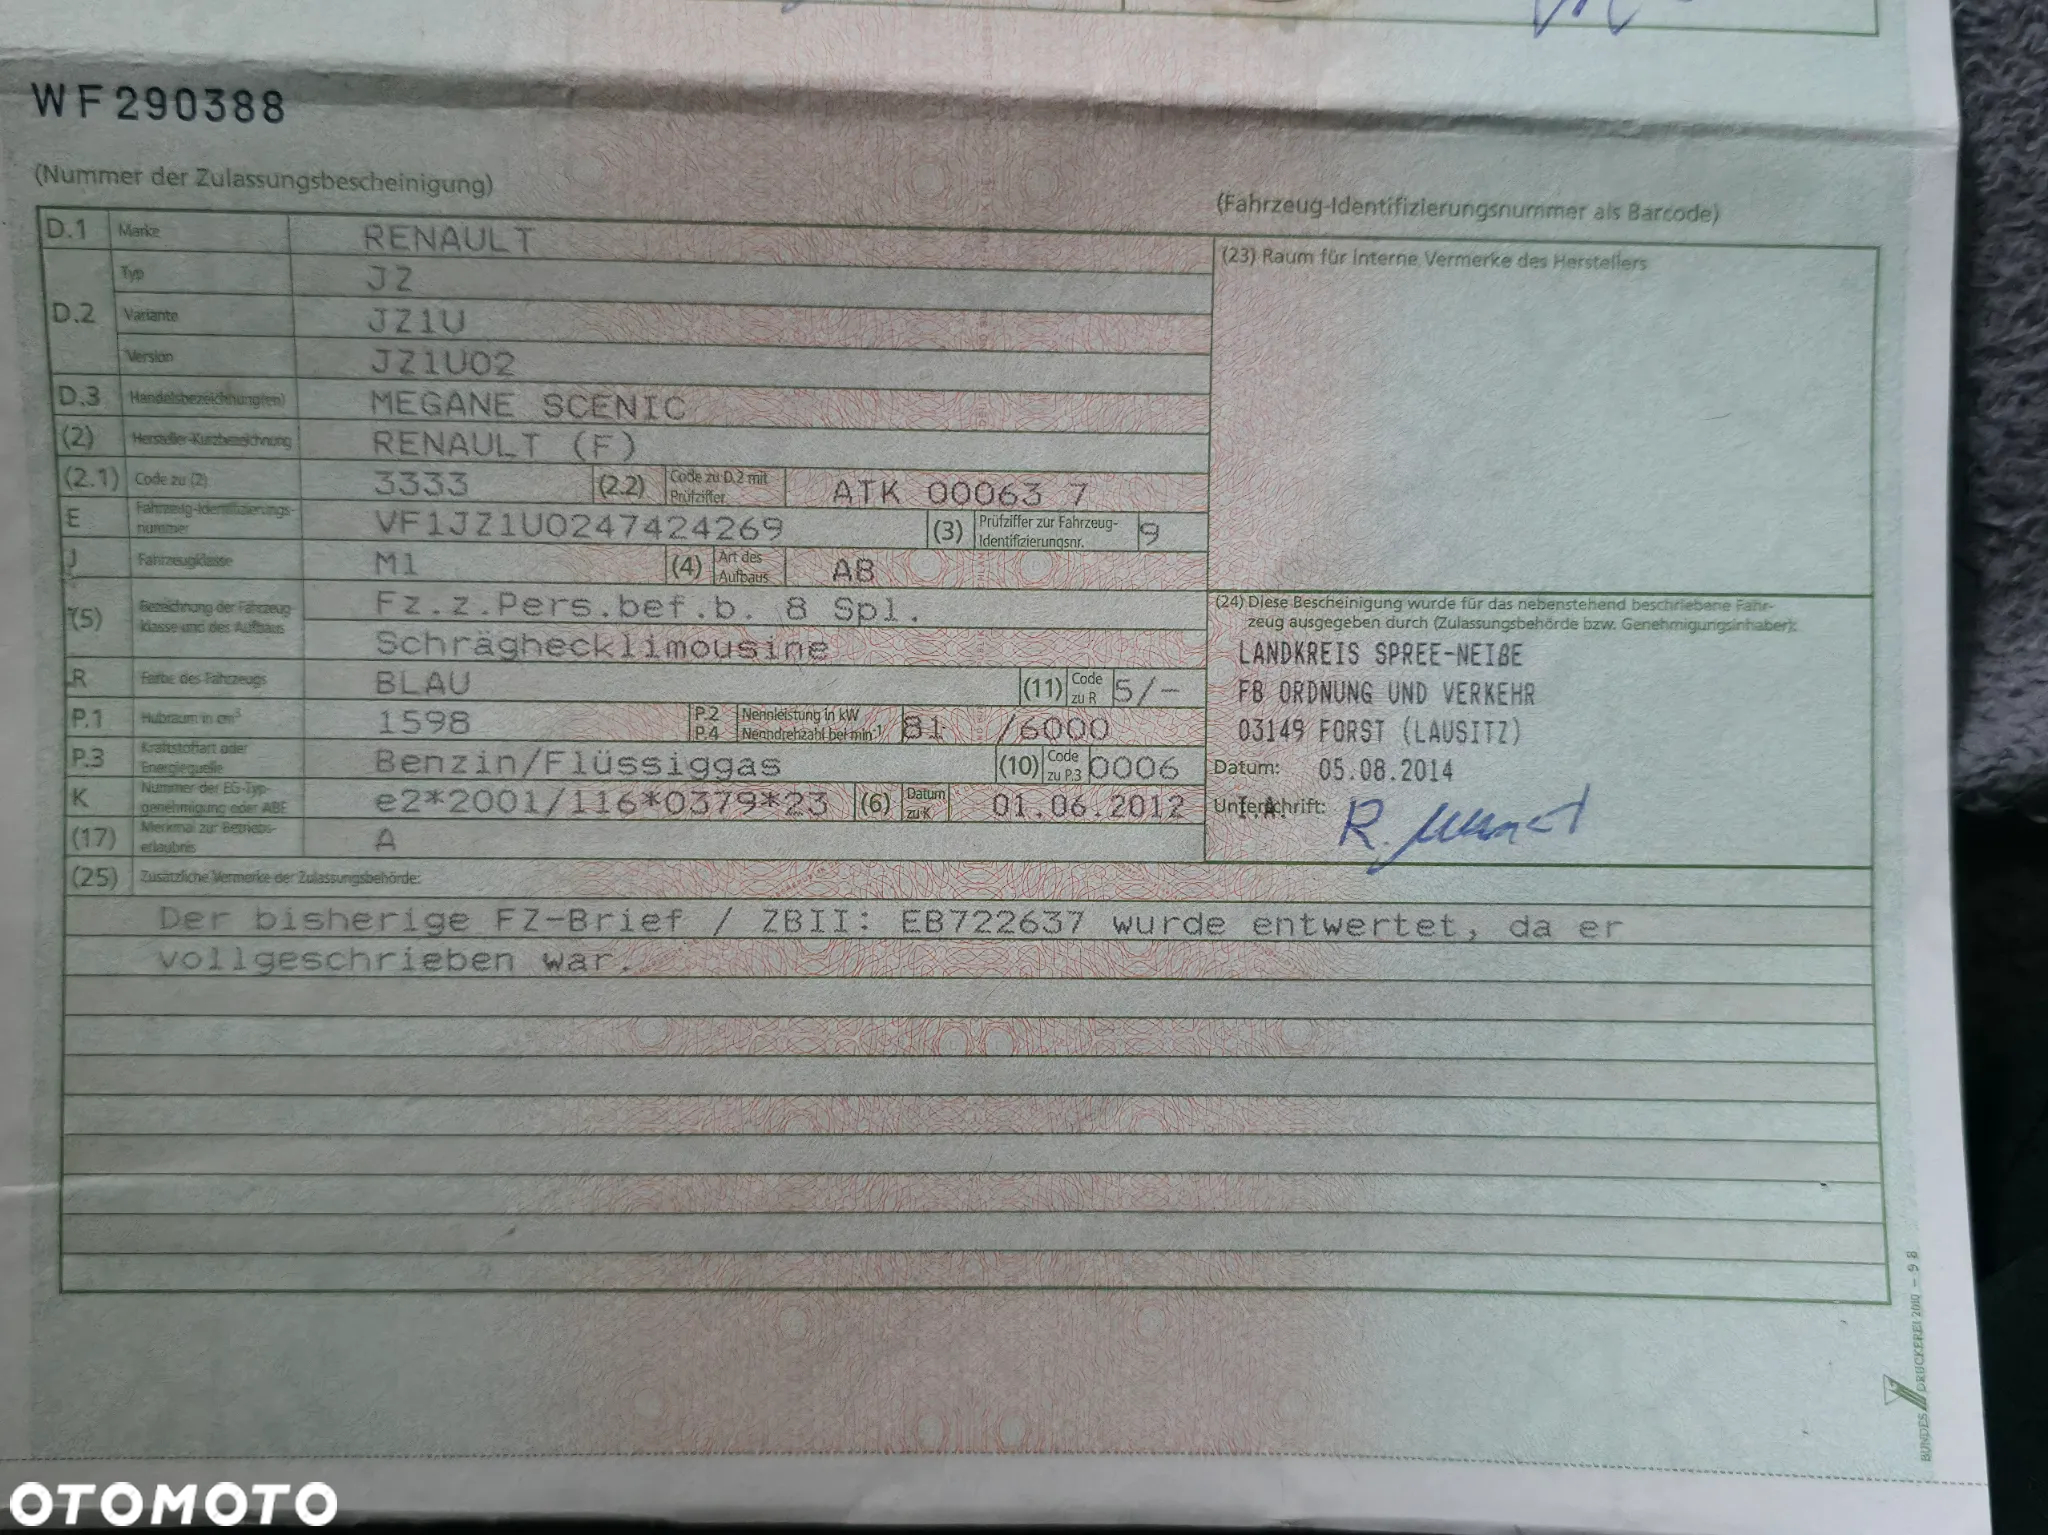 WF290388
(Nummer der Zulassungsbescheinigung)
(Fahrzeug-Identifizierungsnummer als Barcode)
D.1 Marke RENAULT
D.2 Typ JZ
Variante JZ1U
Version JZ1U02
D.3 Handelsbezeichnung(en) MEGANE SCENIC
(2) Hersteller-Kurzbezeichnung RENAULT (F)
(2.1) Code zu (2) 3333 (2.2) Code zu D.2 mit Prüfziffer ATK 00063 7
E Fahrzeug-Identifizierungs-
nummer VF1JZ1U0247424269 (3) Prüfziffer zur Fahrzeug-
Identifizierungsnr. 9
J Fahrzeugklasse M1 (4) Art des Aufbaus AB
(5) Bezeichnung der Fahrzeug-
klasse und des Aufbaus Fz.z.Pers.bef.b. 8 Spl.
Schräghecklimousine
R Farbe des Fahrzeugs BLAU (11) Code zu R 5/-
P.1 Hubraum in cm³ 1598 P.2 Nennleistung in kW
P.4 Nenndrehzahl bei min-1 81 /6000
P.3 Kraftstoffart oder Energiequelle Benzin/Flüssiggas (10) Code zu P.3 0006
K Nummer der EG-Typ-
genehmigung oder ABE e2*2001/116*0379*23 (6) Datum zu K 01.06.2012
(17) Merkmal zur Betriebs-
erlaubnis A
(23) Raum für interne Vermerke des Herstellers
(24) Diese Bescheinigung wurde für das nebenstehend beschriebene Fahr-
zeug ausgegeben durch (Zulassungsbehörde bzw. Genehmigungsinhaber):
LANDKREIS SPREE-NEIßE
FB ORDNUNG UND VERKEHR
03149 FORST (LAUSITZ)
Datum: 05.08.2014
Unterschrift: I.A.
(25) Zusätzliche Vermerke der Zulassungsbehörde:
Der bisherige FZ-Brief / ZBII: EB722637 wurde entwertet, da er
vollgeschrieben war.
BUNDESDRUCKEREI 2010 - 98
OTOMOTO